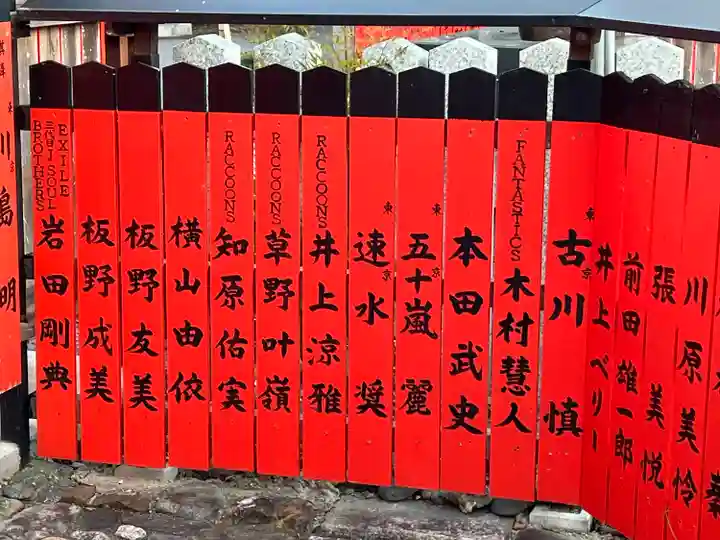 川嶋 明
EXILE
三代目 J SOUL
BROTHERS
岩田剛典
板野成美
板野友美
横山由依
RACCOONS
知原佑実
RACCOONS
草野叶嶺
RACCOONS
井上涼雅
東京
速水 奨
東京
五十嵐 麗
本田武史
FANTASTICS
木村慧人
東京
古川 慎
井上ペリー
前田雄一郎
張 美悦
川原美怜